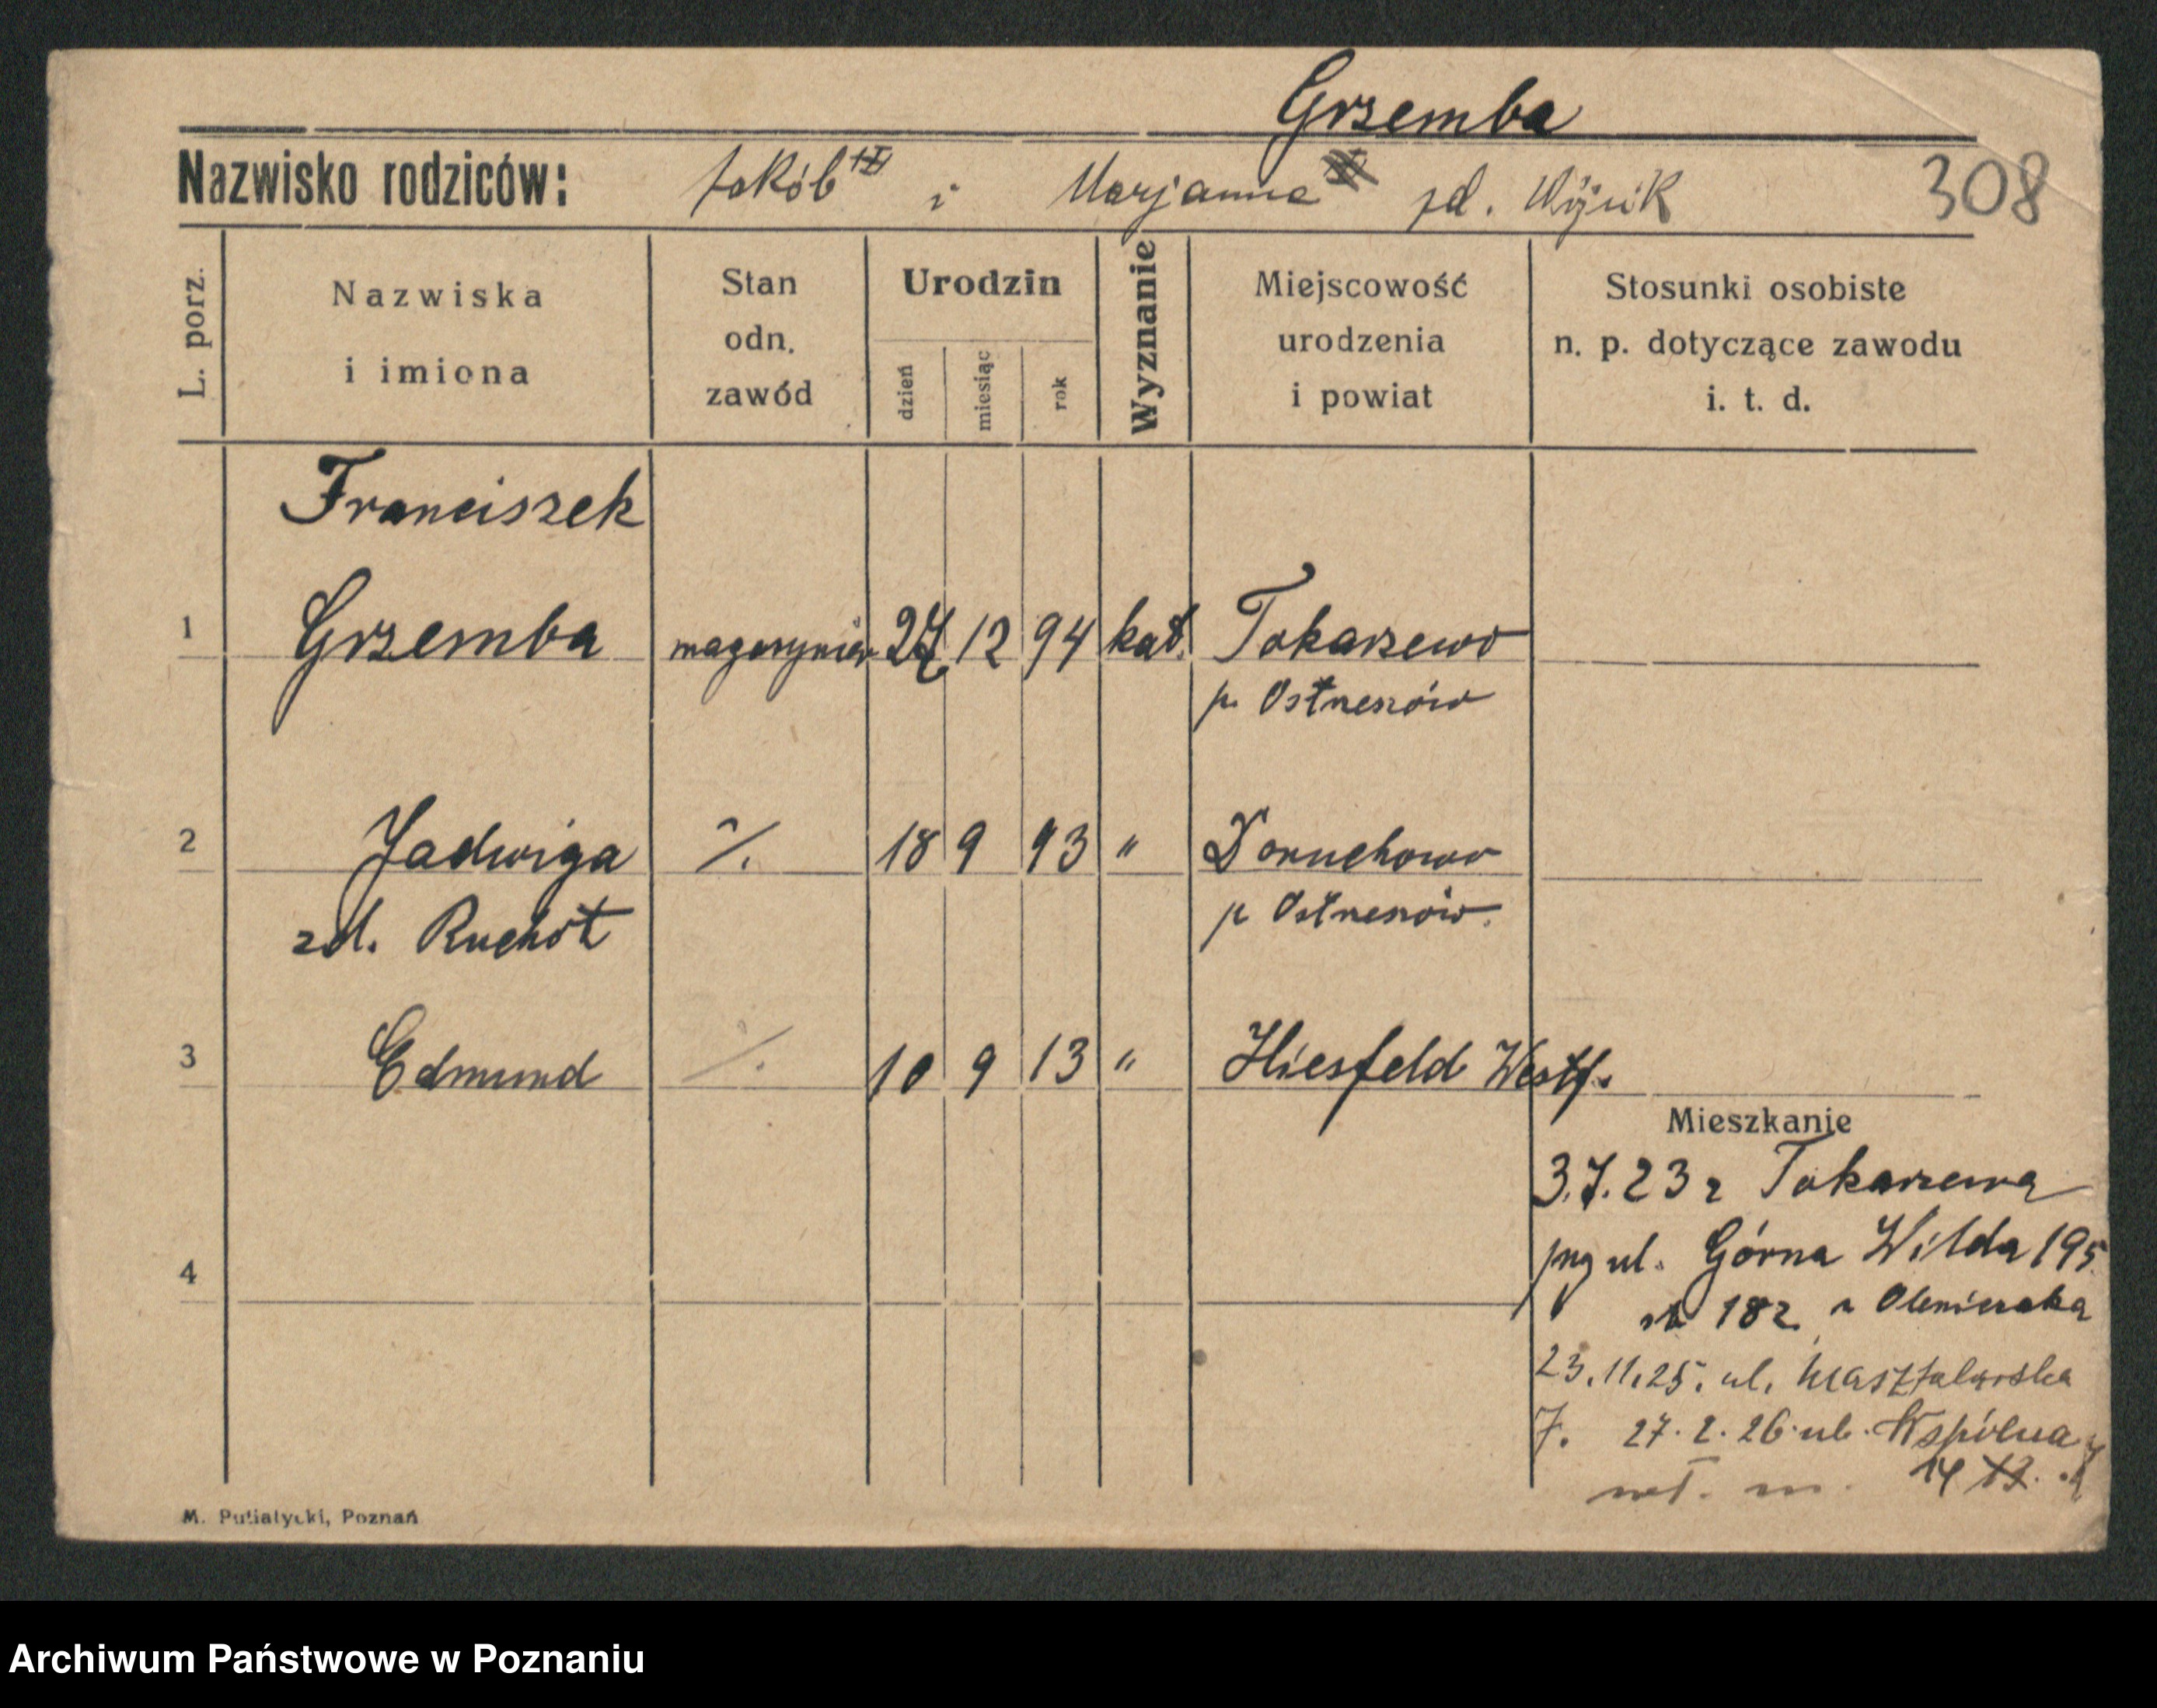 Grzemba
Nazwisko rodziców: Jakób i Marjanna zd. Wójcik 308
L. porz.
Nazwiska i imiona
Stan odn. zawód
Urodzin
dzień miesiąc rok
Wyznanie
Miejscowość urodzenia i powiat
Stosunki osobiste n. p. dotyczące zawodu i. t. d.
Franciszek
1 Grzemba magazynier 27 12 94 kat. Tokarzewo
p. Ostrzeszów
2 Jadwiga ./. 18 9 93 " Doruchowo
zd. Ruchot p Ostrzeszów.
3 Edmund ./. 10 9 13 " Hiesfeld Westf.
Mieszkanie
3.7.23 z Tokarzewa
ul. Górna Wilda 195
182
4
23.11.25. ul. Masztalarska
7. 27.2.26 ul. Wspólna
14
M. Putiatycki, Poznań
Archiwum Państwowe w Poznaniu